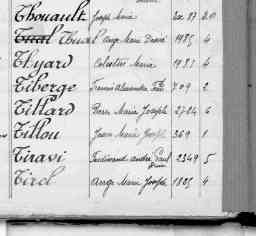 Thouault Joseph Marie
L'ange Marie Désiré 1985 4
Thyard Célestin Marie 1981 4
Tiberge Francis Alexandre 709 2
Tillard Pierre Marie Joseph 2704 6
Tillou Jean Marie Joseph 369 1
Tiravi Ferdinand André Paul 2349 5
Tirel Ange Marie Joseph 1805 4